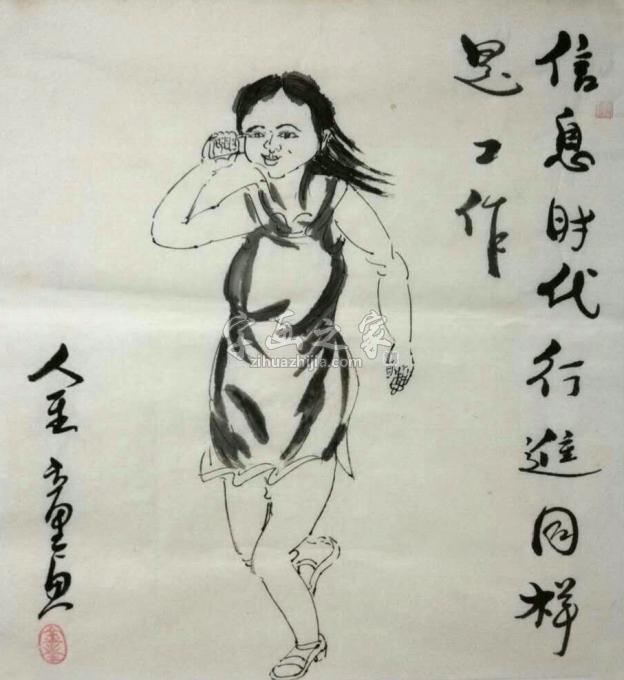 信息时代行進同样
是工作
字画之家
zihuazhijia.com